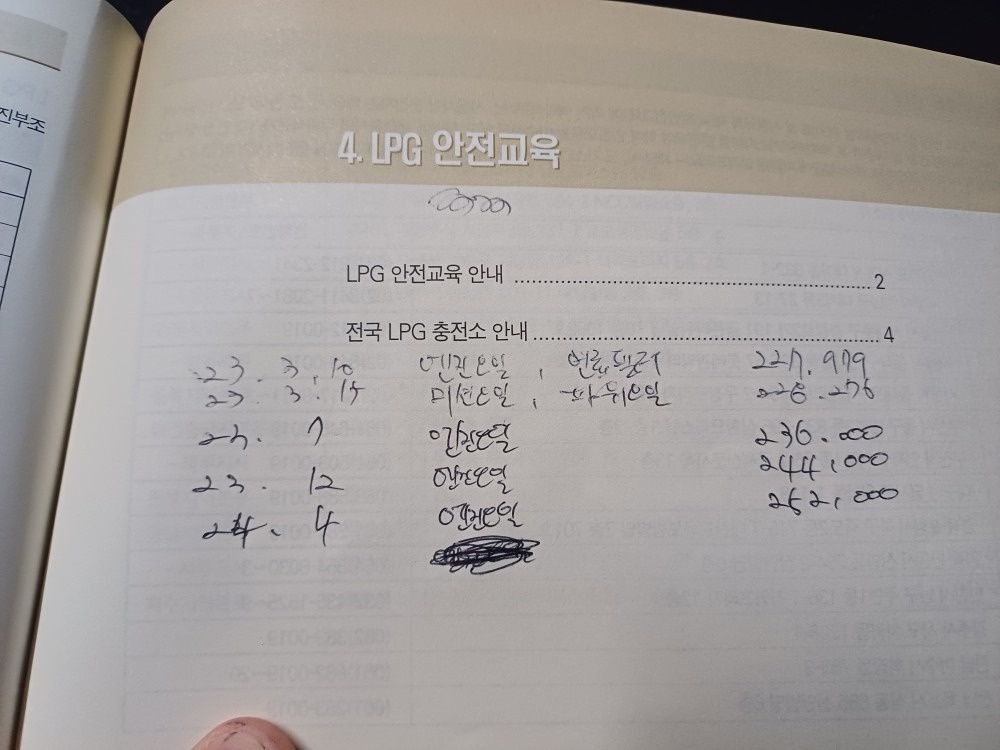 진부조
4. LPG 안전교육
LPG 안전교육 안내 2
전국 LPG 충전소 안내 4
23. 3. 10 엔진오일, 연료필터 227.979
23. 3. 15 미션오일, 파워오일 228.276
23. 7 엔진오일 236.000
23. 12 엔진오일 244,000
24. 4 엔진오일 252,000